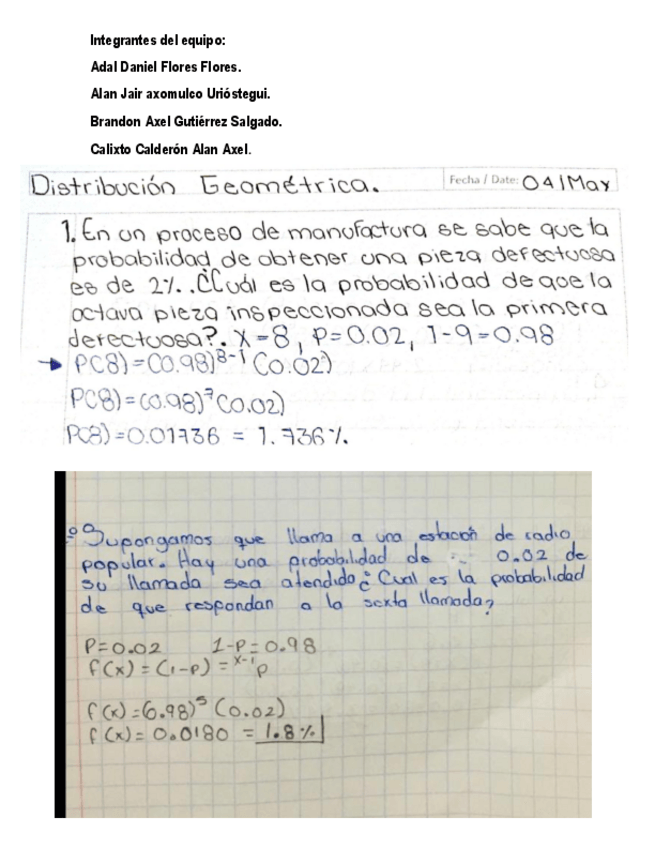 Integrantes del equipo:
Adal Daniel Flores Flores.
Alan Jair axomulco Urióstegui.
Brandon Axel Gutiérrez Salgado.
Calixto Calderón Alan Axel.
Distribución Geométrica. Fecha / Date: 04/May
1. En un proceso de manufactura se sabe que la
probabilidad de obtener una pieza defectuosa
es de 2%. ¿Cuál es la probabilidad de que la
octava pieza inspeccionada sea la primera
defectuosa?. X=8, P=0.02, 1-q=0.98
→ P(8)=(0.98)^8-1 (0.02)
P(8)=(0.98)^7 (0.02)
P(8)=0.01736 = 1.736%.
Supongamos que llama a una estación de radio
popular. Hay una probabilidad de 0.02 de
su llamada sea atendido ¿Cual es la probabilidad
de que respondan a la sexta llamada?
P=0.02 1-P=0.98
f(x)=(1-p)=^x-1 p
f(x)=(0.98)^5 (0.02)
f(x)=0.0180 = 1.8%